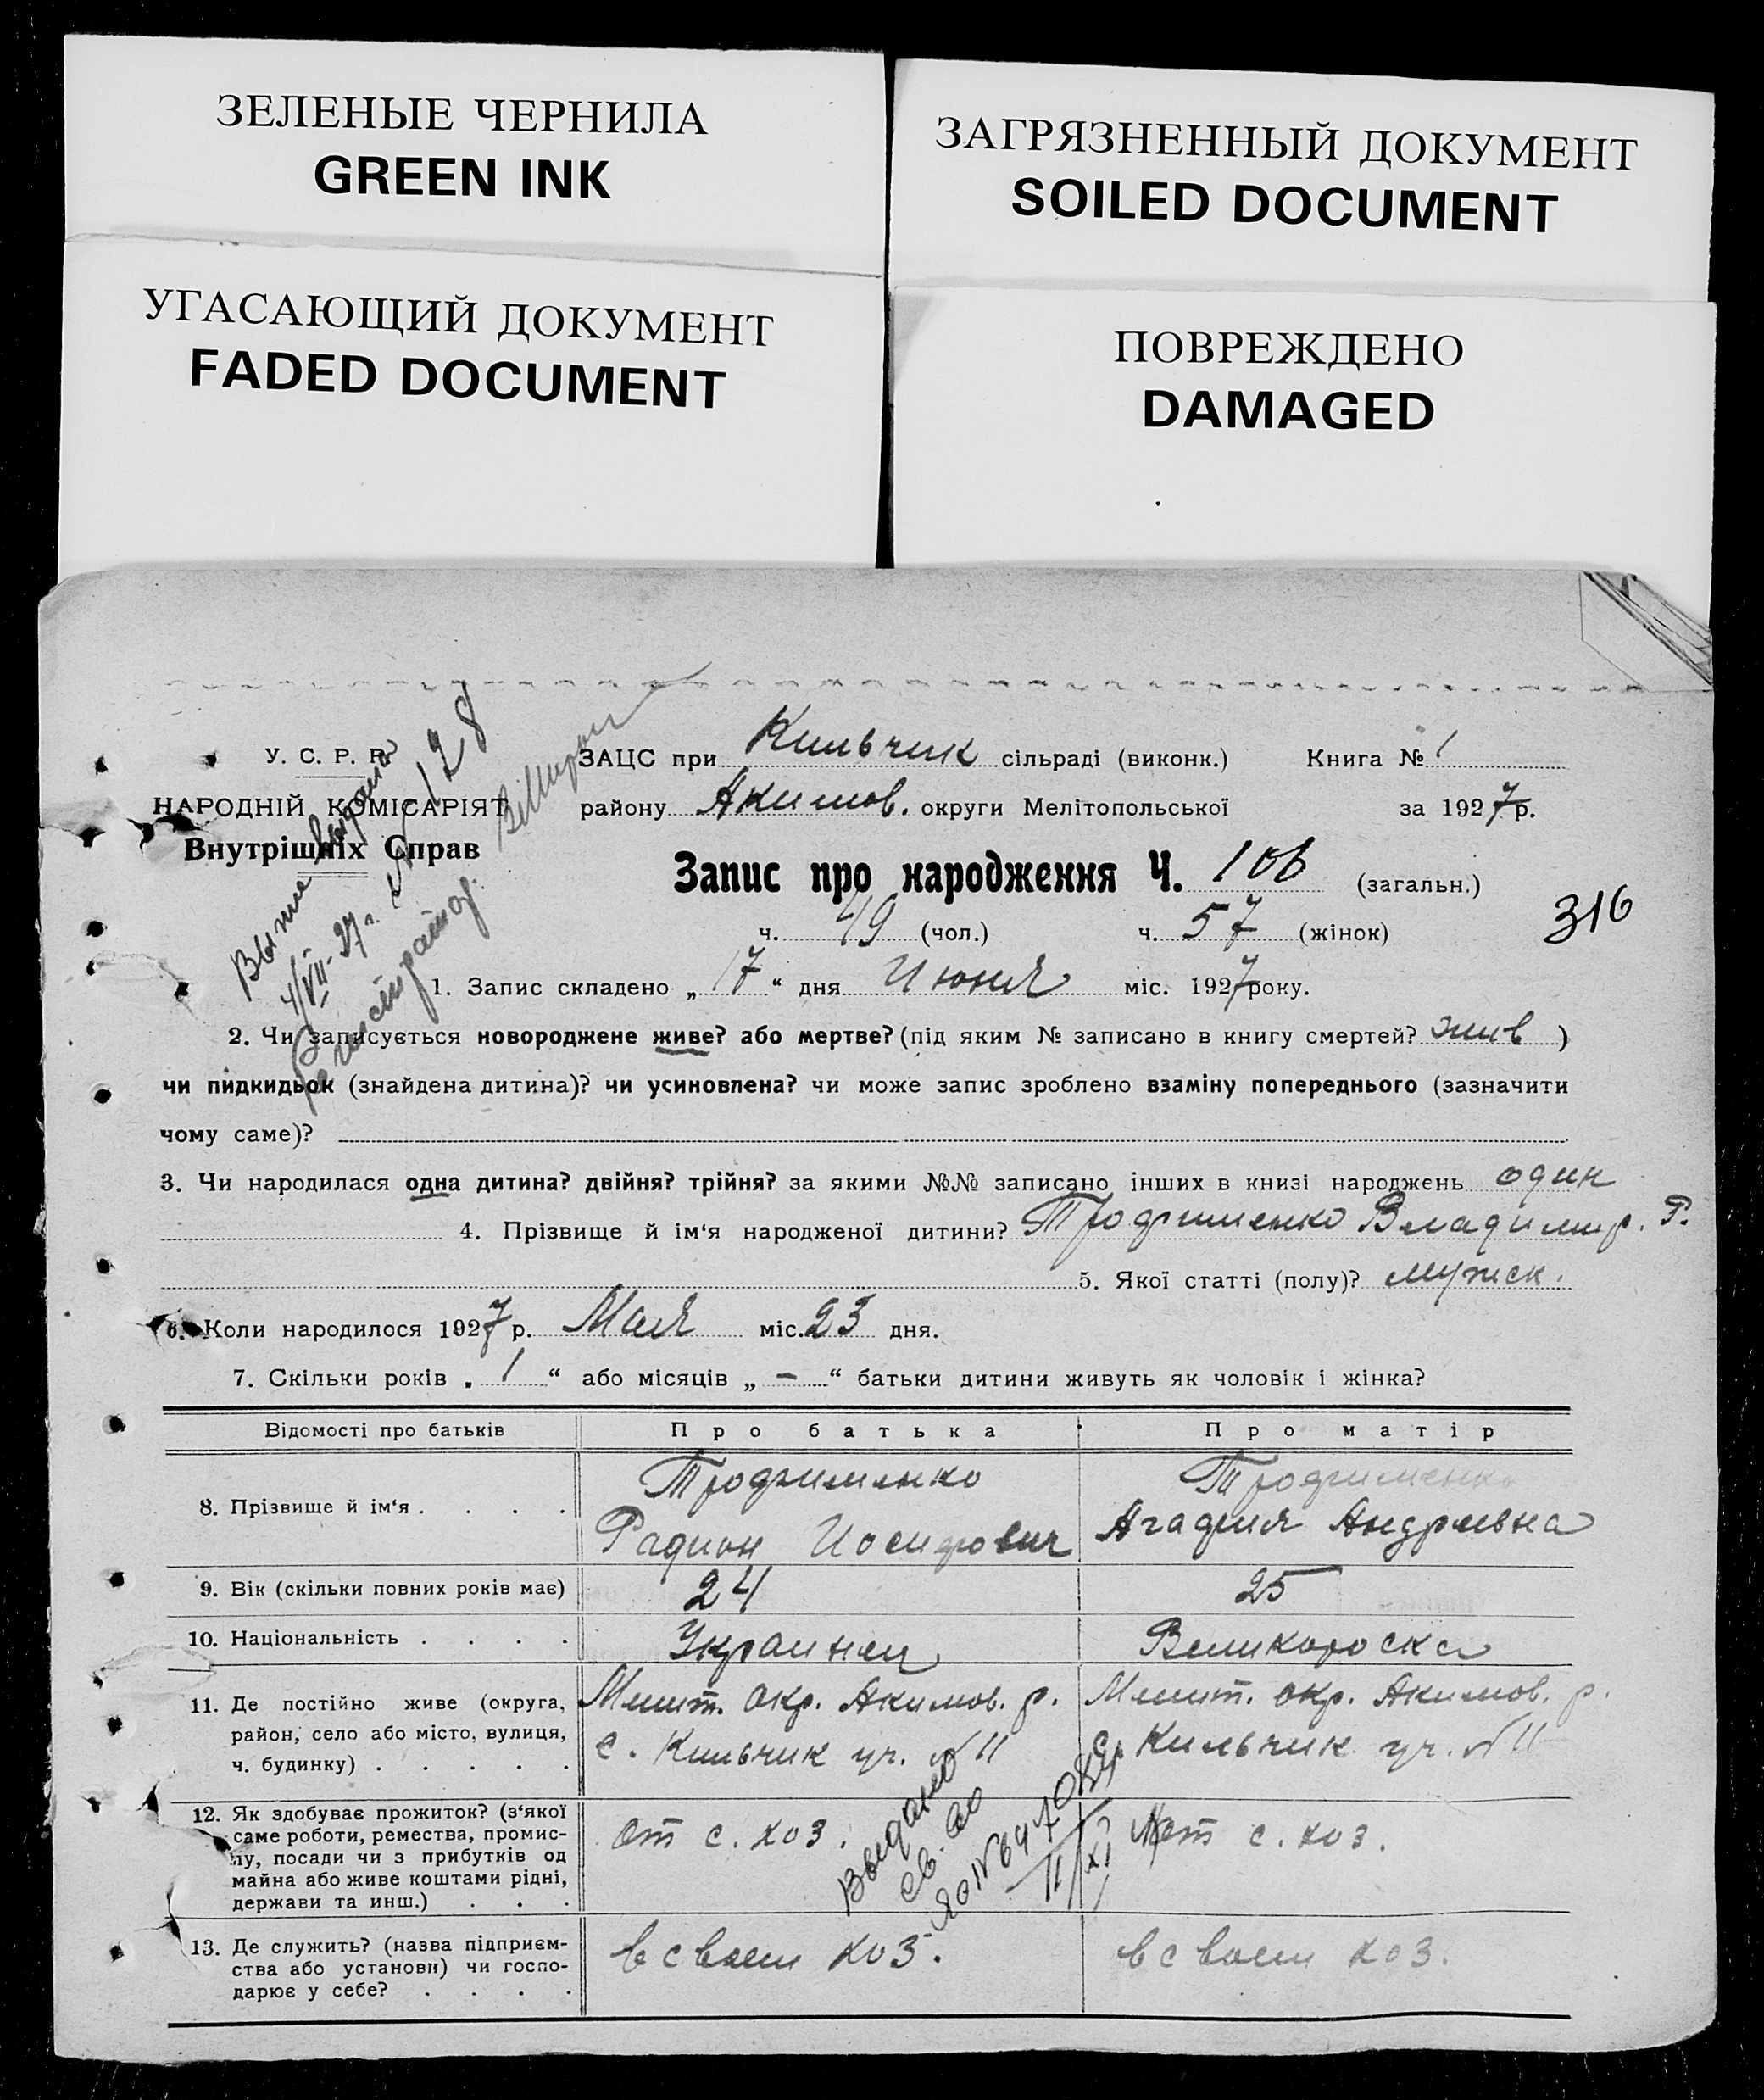 ЗЕЛЕНЫЕ ЧЕРНИЛА
GREEN INK
ЗАГРЯЗНЕННЫЙ ДОКУМЕНТ
SOILED DOCUMENT
УГАСАЮЩИЙ ДОКУМЕНТ
FADED DOCUMENT
ПОВРЕЖДЕНО
DAMAGED
У. С. Р. Р.
НАРОДНІЙ КОМІСАРІЯТ
Внутрішніх Справ
ЗАЦС при Кильчик сільраді (виконк.) Книга № 1
району Акимов. округи Мелітопольської за 1927 р.
Запис про народження Ч. 106 (загальн.)
316
ч. 49 (чол.) ч. 57 (жінок)
1. Запис складено „ 17 “ дня Июня міс. 1927 року.
2. Чи записується новороджене живе? або мертве? (під яким № записано в книгу смертей? жив )
чи пидкидьок (знайдена дитина)? чи усиновлена? чи може запис зроблено взаміну попереднього (зазначити
чому саме)?
3. Чи народилася одна дитина? двійня? трійня? за якими №№ записано інших в книзі народжень один
4. Прізвище й ім‘я народженої дитини? Трофименко Владимир. Р.
5. Якої статті (полу)? мужск.
6. Коли народилося 1927 р. Мая міс. 23 дня.
7. Скільки років „ 1 “ або місяців „ — “ батьки дитини живуть як чоловік і жінка?
Відомості про батьків Про батька Про матір
8. Прізвище й ім‘я . . . . .
Трофименко
Радион Иосифович
Трофименко
Агафия Андреевна
9. Вік (скільки повних років має) 24 25
10. Національність . . . . Украинец Великороска
11. Де постійно живе (округа,
район, село або місто, вулиця,
ч. будинку) . . . . .
Мелит. окр. Акимов. р.
с. Кильчик уч. № 11
Мелит. окр. Акимов. р.
с. Кильчик уч. № 11
12. Як здобуває прожиток? (з‘якої
саме роботи, ремества, промис-
лу, посади чи з прибутків од
майна або живе коштами рідні,
держави та инш.) . . .
от с. хоз.
от с. хоз.
13. Де служить? (назва підприєм-
ства або установи) чи госпо-
дарює у себе? . . . .
в своем хоз.
в своем хоз.
Выдано
св. во